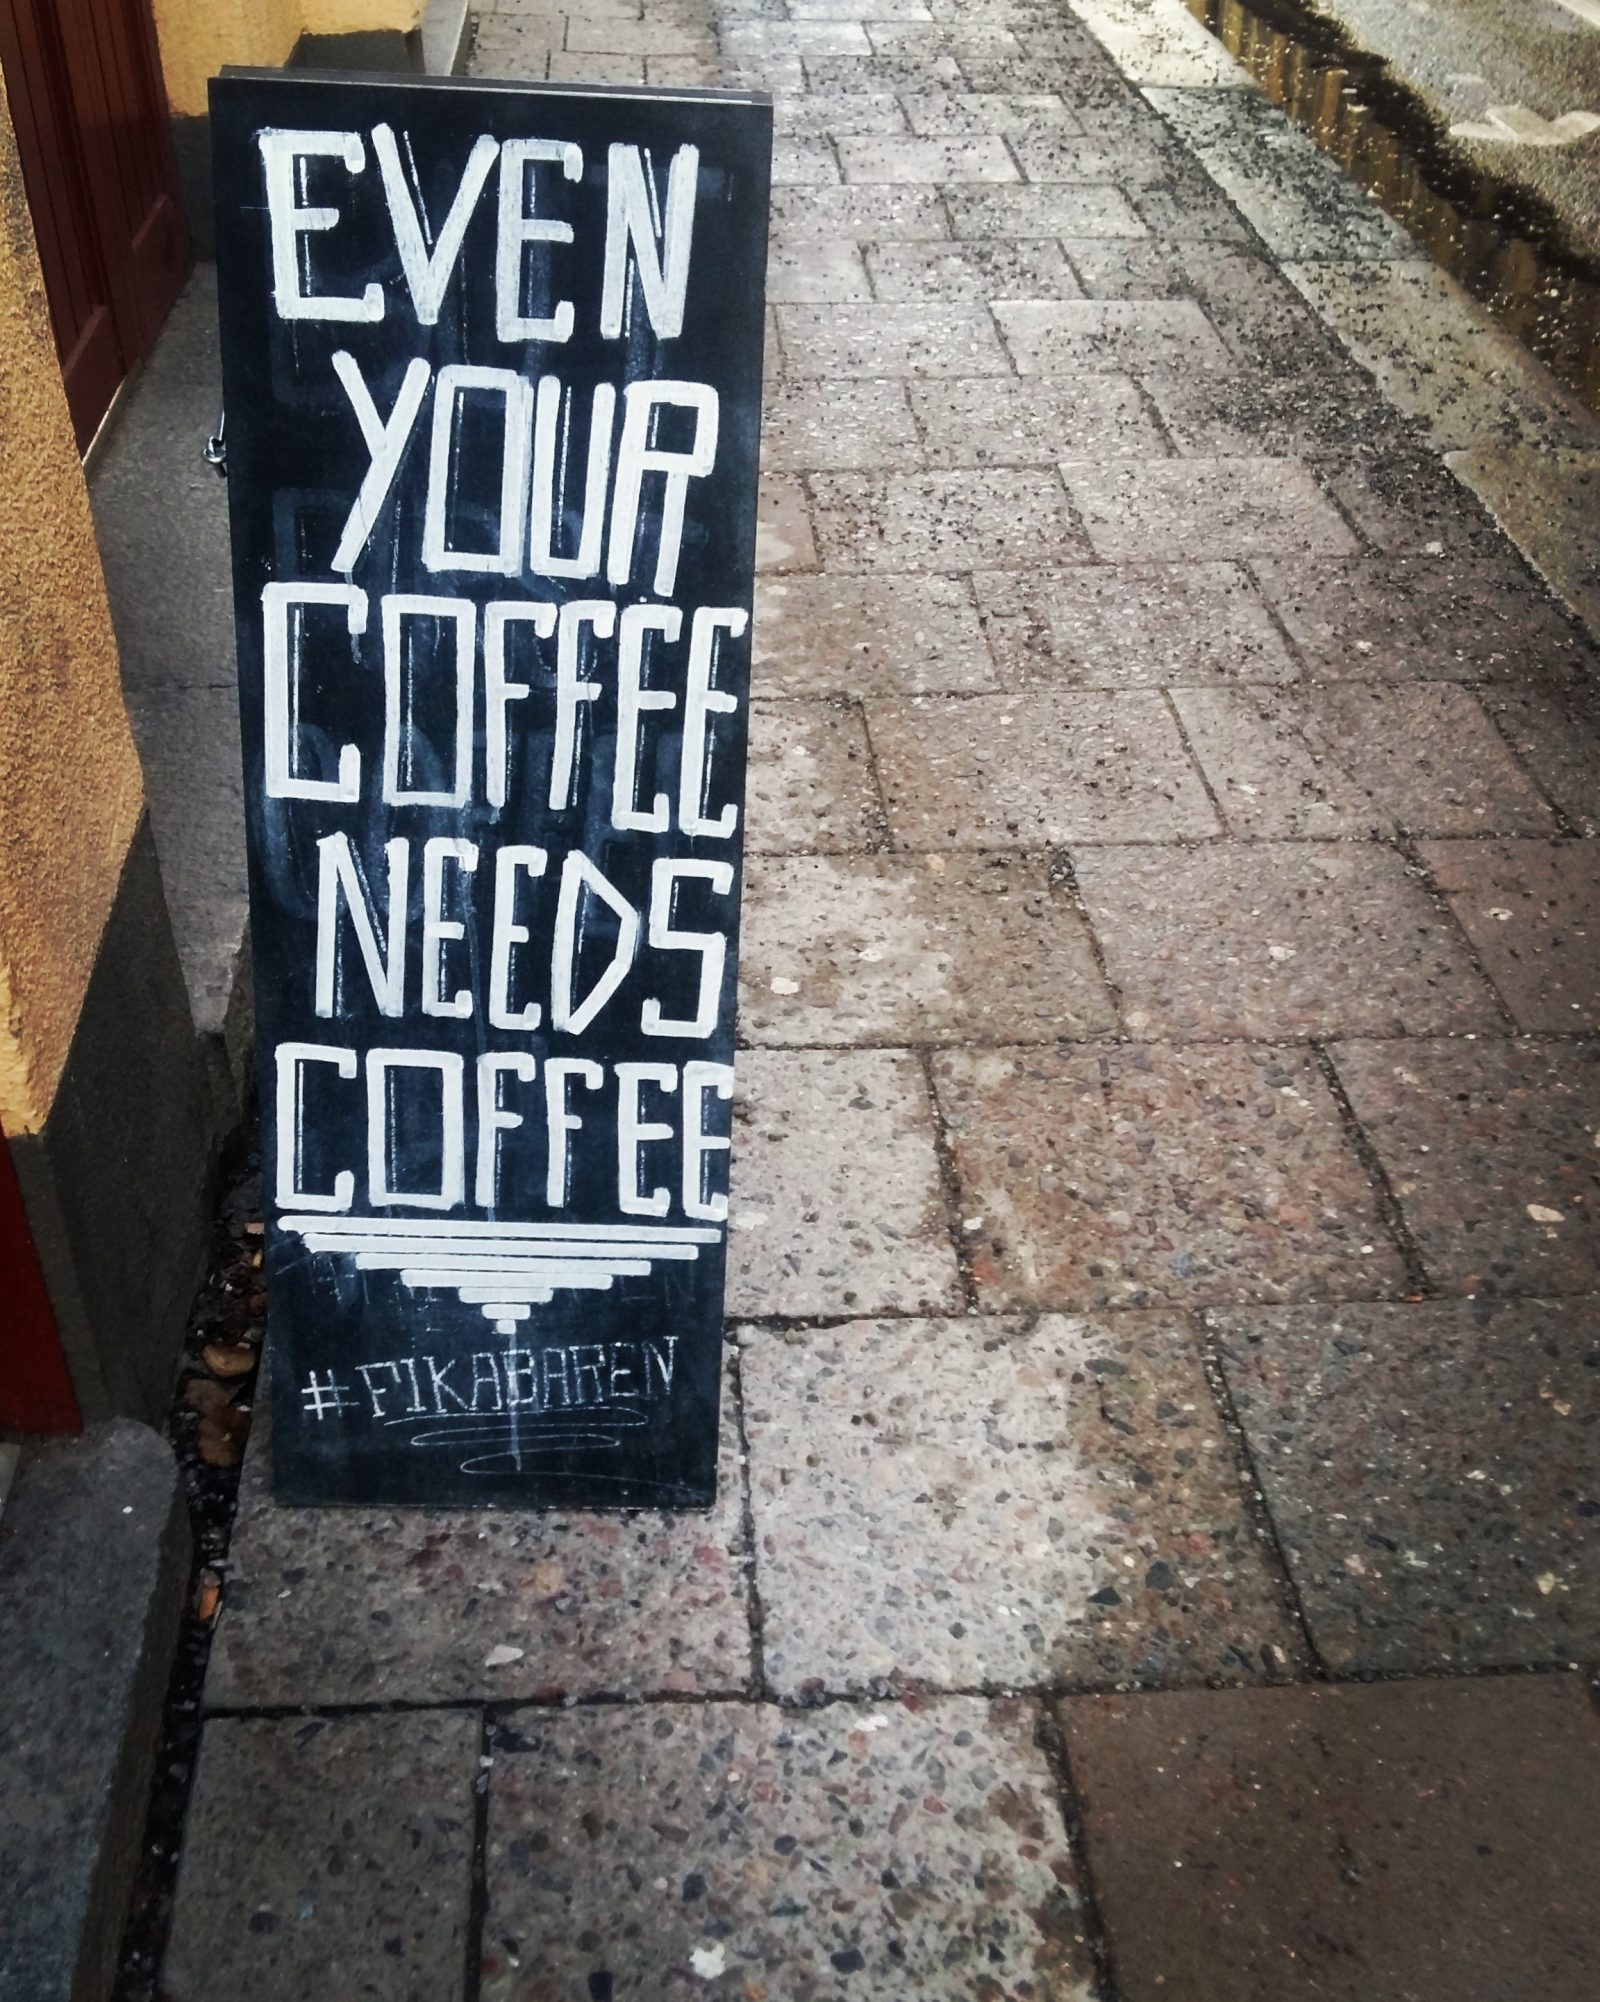 EVEN
YOUR
COFFEE
NEEDS
COFFEE
#FIKABAREN